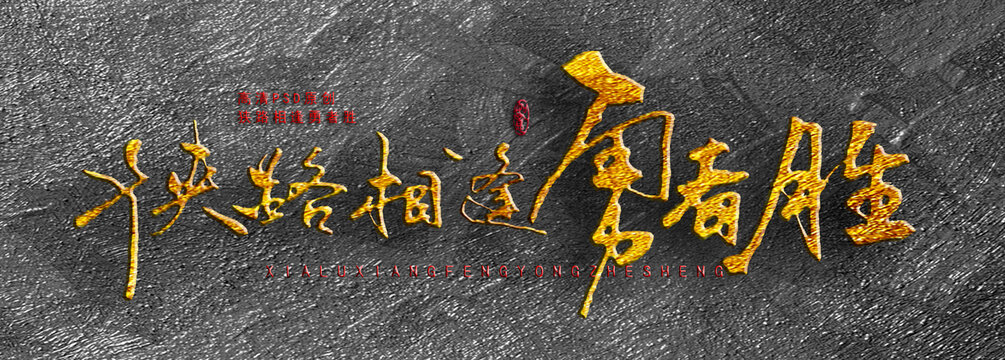 狭路相逢勇者胜
狭路相逢勇者胜
XIALUXIANGFENGYONGZHESHENG